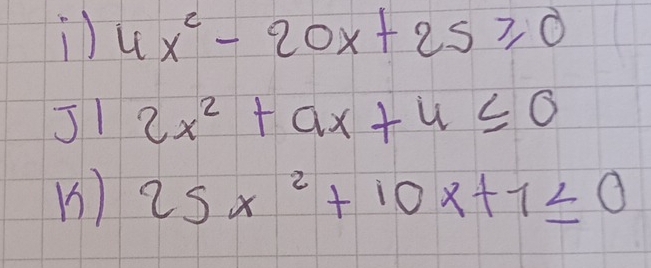 i) 4x² - 20x + 25 ≥ 0
J) 2x² + 9x + 4 ≤ 0
K) 25x² + 10x + 1 ≤ 0